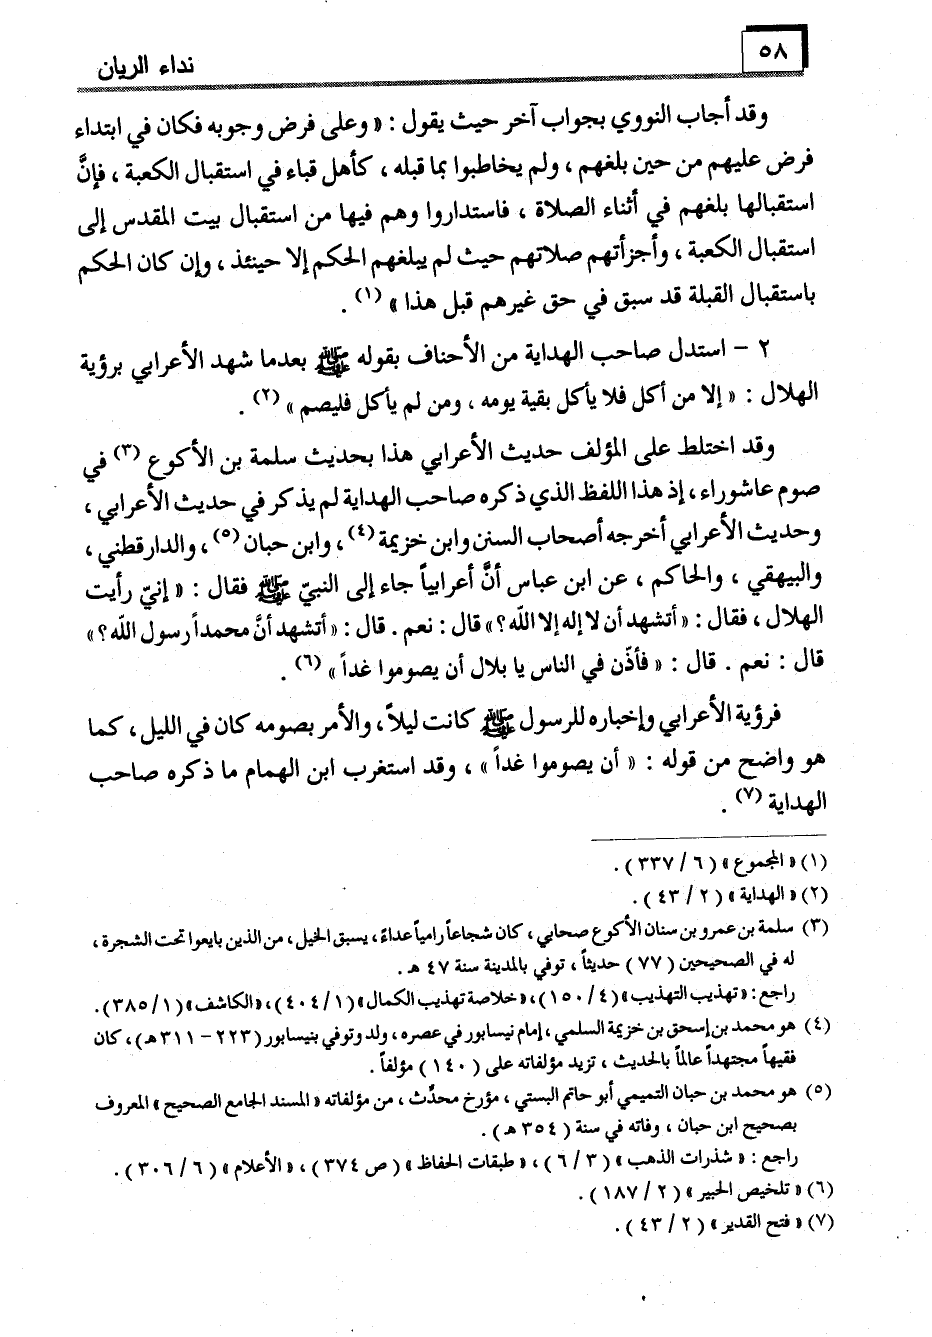 ٥٨
نداء الريان
وقد أجاب النووي بجواب آخر حيث يقول : « وعلى فرض وجوبه فكان في ابتداء
فرض عليهم من حين بلغهم ، ولم يخاطبوا بما قبله ، كأهل قباء في استقبال الكعبة ، فإنَّ
استقبالها بلغهم في أثناء الصلاة ، فاستداروا وهم فيها من استقبال بيت المقدس إلى
استقبال الكعبة ، وأجزأتهم صلاتهم حيث لم يبلغهم الحكم إلا حينئذ ، وإن كان الحكم
باستقبال القبلة قد سبق في حق غيرهم قبل هذا » (١) .
٢ – استدل صاحب الهداية من الأحناف بقوله ﷺ بعدما شهد الأعرابي برؤية
الهلال : « إلا من أكل فلا يأكل بقية يومه ، ومن لم يأكل فليصم » (٢) .
وقد اختلط على المؤلف حديث الأعرابي هذا بحديث سلمة بن الأكوع (٣) في
صوم عاشوراء ، إذ هذا اللفظ الذي ذكره صاحب الهداية لم يذكر في حديث الأعرابي ،
وحديث الأعرابي أخرجه أصحاب السنن وابن خزيمة (٤) ، وابن حبان (٥) ، والدارقطني ،
والبيهقي ، والحاكم ، عن ابن عباس أنَّ أعرابياً جاء إلى النبيّ ﷺ فقال : « إنيّ رأيت
الهلال ، فقال : « أتشهد أن لا إله إلا الله ؟ » قال : نعم . قال : « أتشهد أنَّ محمداً رسول الله ؟ »
قال : نعم . قال : « فأذّن في الناس يا بلال أن يصوموا غداً » (٦) .
فرؤية الأعرابي وإخباره للرسول ﷺ كانت ليلاً ، والأمر بصومه كان في الليل ، كما
هو واضح من قوله : « أن يصوموا غداً » ، وقد استغرب ابن الهمام ما ذكره صاحب
الهداية (٧) .
(١) « المجموع » ( ٦ / ٣٣٧ ) .
(٢) « الهداية » ( ٢ / ٤٣ ) .
(٣) سلمة بن عمرو بن سنان الأكوع صحابي ، كان شجاعاً رامياً عداءً ، يسبق الخيل ، من الذين بايعوا تحت الشجرة ،
له في الصحيحين ( ٧٧ ) حديثاً ، توفي بالمدينة سنة ٤٧ هـ .
راجع : « تهذيب التهذيب » ( ٤ / ١٥٠ ) ، « خلاصة تهذيب الكمال » ( ١ / ٤٠٤ ) ، « الكاشف » ( ١ / ٣٨٥ ) .
(٤) هو محمد بن إسحق بن خزيمة السلمي ، إمام نيسابور في عصره ، ولد وتوفي بنيسابور ( ٢٢٣ – ٣١١ هـ ) ، كان
فقيهاً مجتهداً عالماً بالحديث ، تزيد مؤلفاته على ( ١٤٠ ) مؤلفاً .
(٥) هو محمد بن حبان التميمي أبو حاتم البستي ، مؤرخ محدّث ، من مؤلفاته « المسند الجامع الصحيح » المعروف
بصحيح ابن حبان ، وفاته في سنة ( ٣٥٤ هـ ) .
راجع : « شذرات الذهب » ( ٣ / ٦ ) ، « طبقات الحفاظ » ( ص ٣٧٤ ) ، « الأعلام » ( ٦ / ٣٠٦ ) .
(٦) « تلخيص الحبير » ( ٢ / ١٨٧ ) .
(٧) « فتح القدير » ( ٢ / ٤٣ ) .